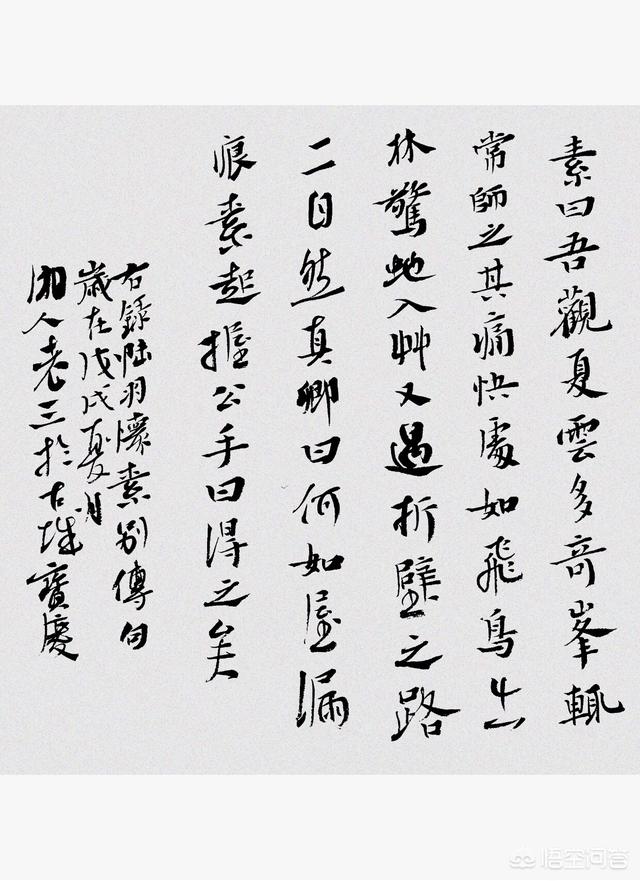 素曰吾觀夏雲多奇峯輒
常師之其痛快處如飛鳥出
林驚虵入艸又遇折壁之路
一一自然真卿曰何如屋漏
痕素起握公手曰得之矣
右錄陆羽懷素別傳句
歲在戊戌夏月
湘人老三於古城寶慶
悟空问答